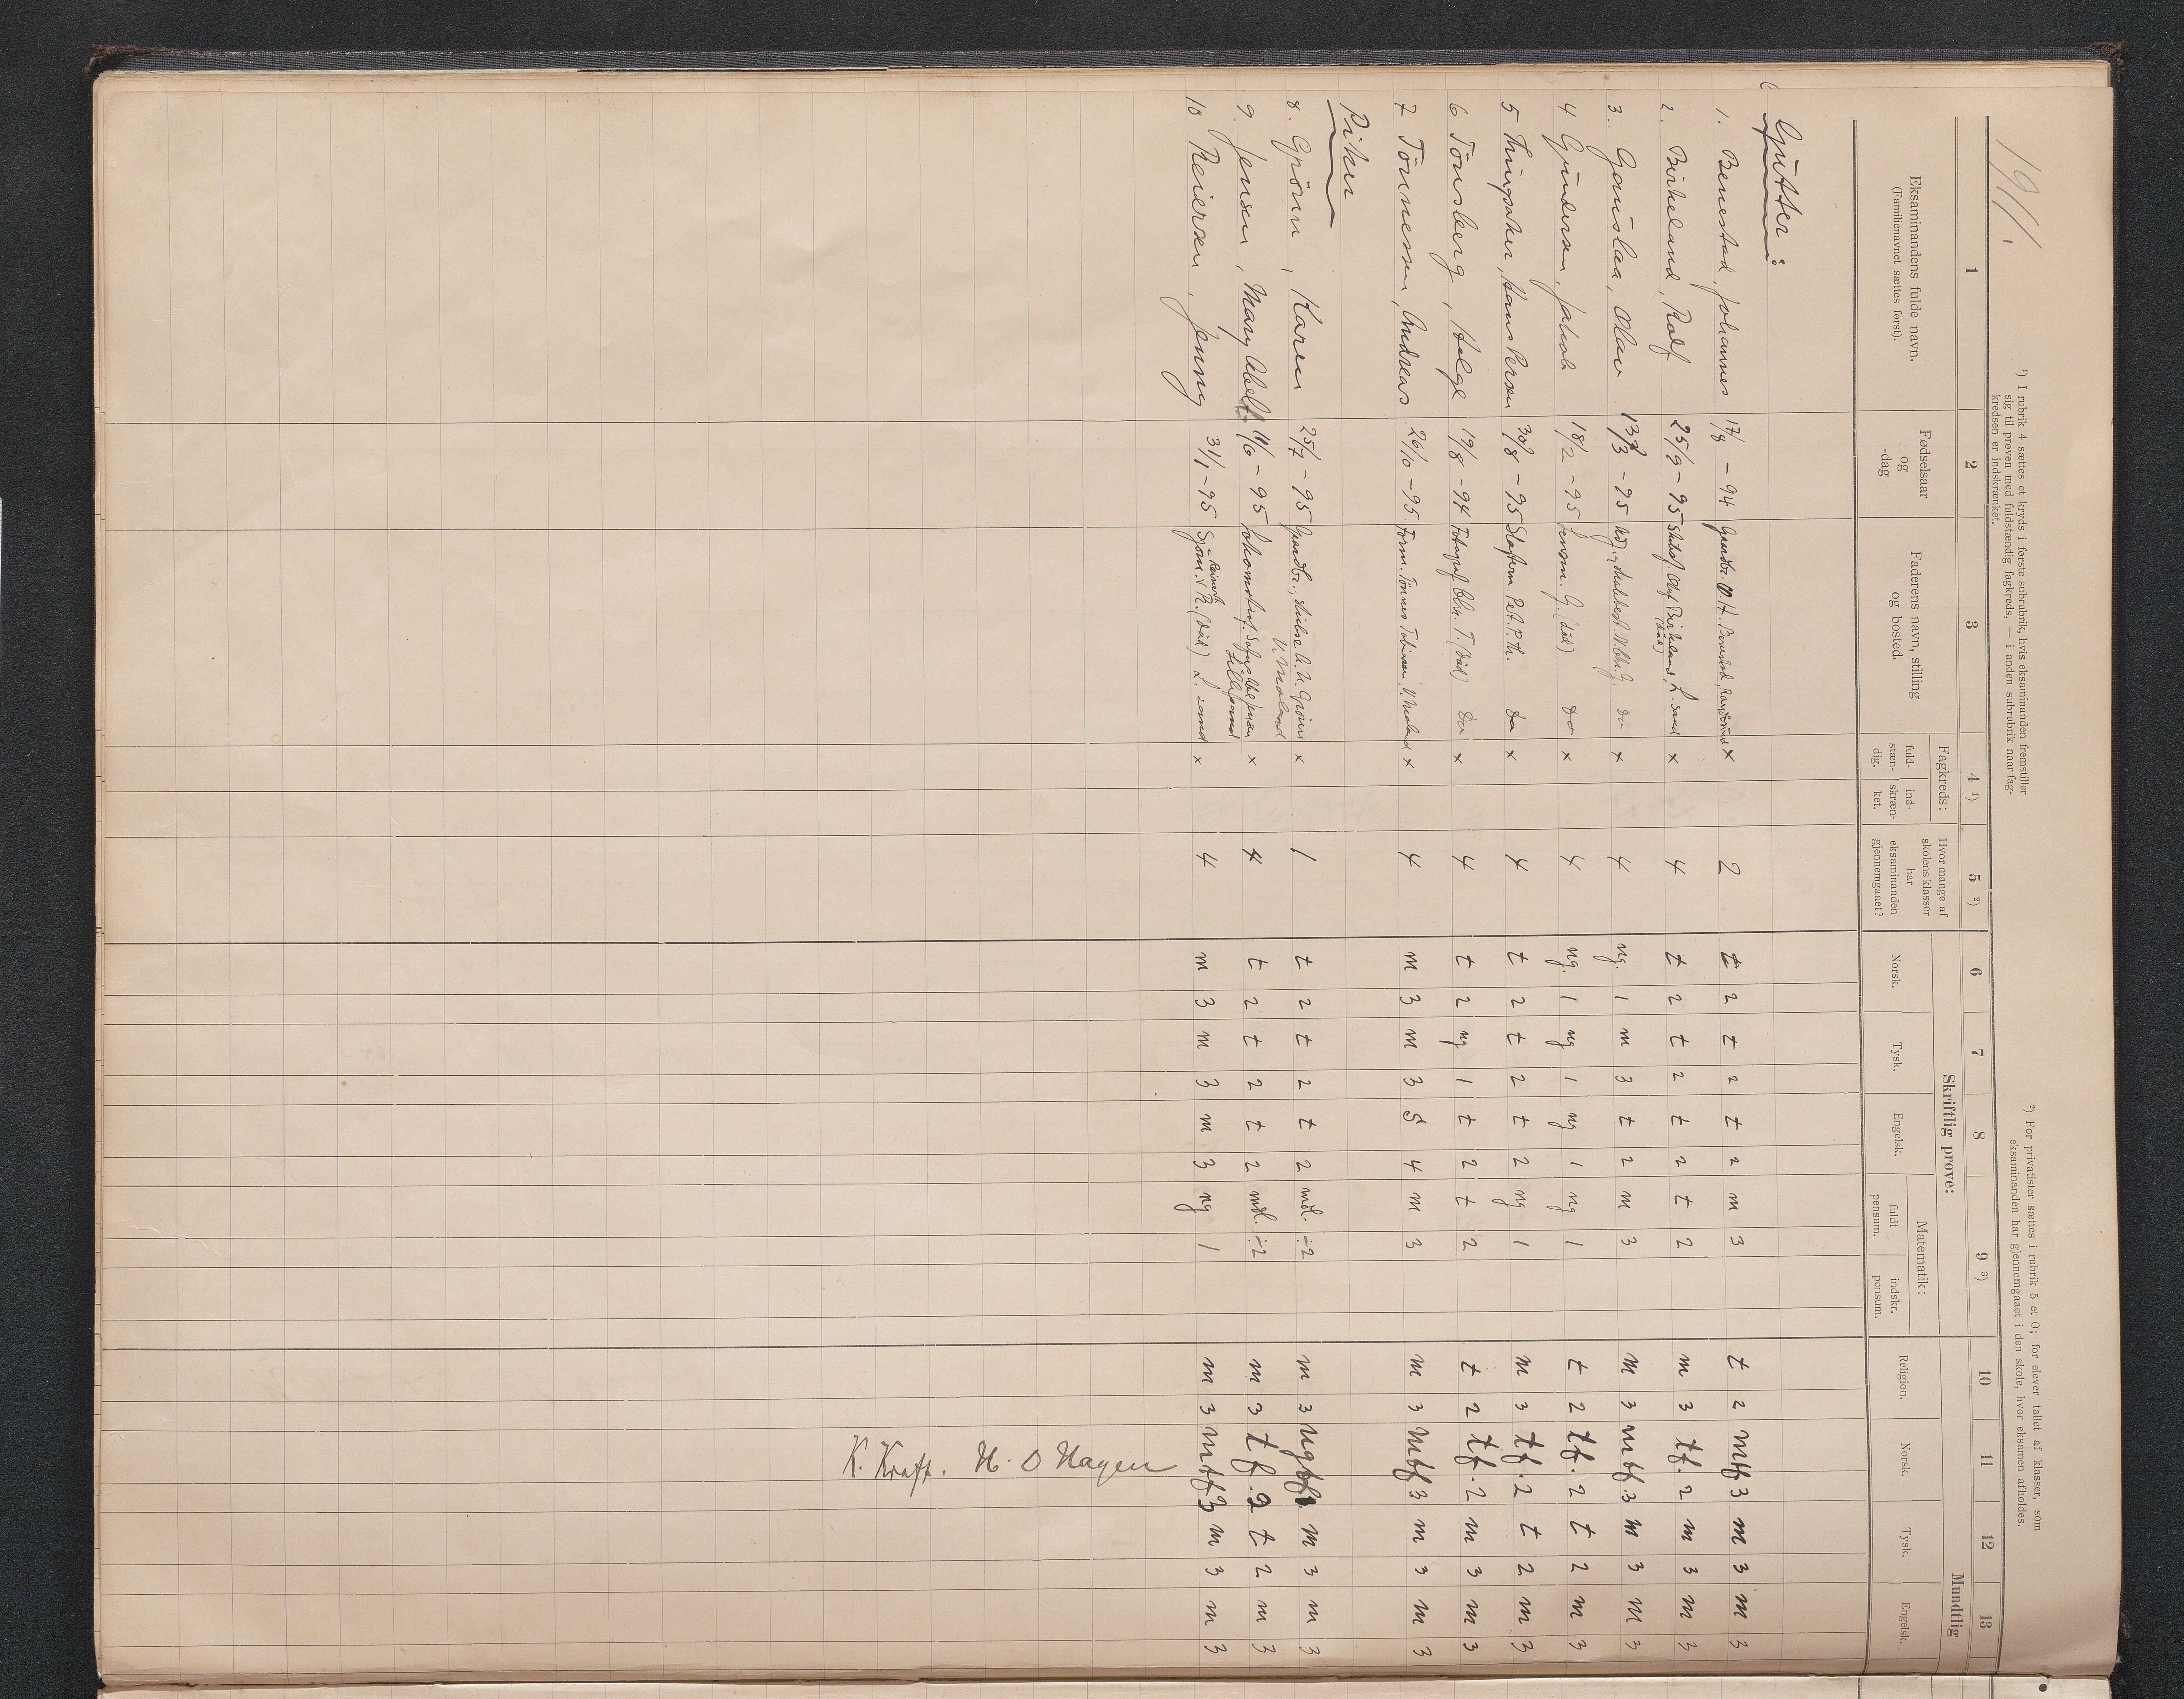 1911.
¹) I rubrik 4 sættes et kryds i første subrubrik, hvis eksaminanden fremstiller
sig til prøven med fuldstændig fagkreds, — i anden subrubrik naar fag-
kredsen er indskrænket.
²) For privatister sættes i rubrik 5 et 0; for elever tallet af klasser, som
eksaminanden har gjennemgaaet i den skole, hvor eksamen afholdes.
1 2 3 4 ¹) 5 ²) 6 7 8 9 ³) 10 11 12 13
Eksaminandens fulde navn.
(Familienavnet sættes først).
Fødselsaar
og
-dag
Faderens navn, stilling
og bosted.
Fagkreds:
fuld-
stæn-
dig.
ind-
skræn-
ket.
Hvor mange af
skolens klasser
har
eksaminanden
gjennemgaaet?
Skriftlig prøve:
Norsk. Tysk. Engelsk.
Matematik:
fuldt
pensum.
indskr.
pensum.
Mundtlig
Religion. Norsk. Tysk. Engelsk.
Gutter:
1. Benestad, Johannes 17/8 - 94 Gaardbr. O. H. Benestad, Randøsund x 2 t 2 t 2 t 2 m 3 t 2 mtf 3 m 3 m 3
2. Birkeland, Ralf 25/9 - 95 Skibsf. Olaf Birkeland, L.sand (død) x 4 t 2 t 2 t 2 t 2 m 3 tf. 2 m 3 m 3
3. Gauslaa, Olav 13/3 - 95 do x 4 ng. 1 m 3 t 2 m 3 m 3 mtf. 3 m 3 m 3
4 Gundersen, Jakob 18/2 - 95 Lensm. G. (død) do x 4 ng. 1 ng 1 ng 1 ng 1 t 2 tf. 2 t 2 m 3
5 Thingsaker, Hans Persen 30/8 - 95 P. Th. do x 4 t 2 t 2 t 2 ng 1 m 3 tf. 2 t 2 m 3
6 Tönsberg, Helge 19/8 - 94 Fotograf Chr. T. (død) do x 4 t 2 ng 1 t 2 t 2 t 2 tf. 2 m 3 m 3
7 Tönnesen, Andreas 26/10 - 95 Form. Tönnes Tobiassen, V. Moland x 4 m 3 m 3 S 4 m 3 m 3 mtf 3 m 3 m 3
Piker
8. Grönn, Karen 25/7 - 95 Gaardbr. Grönn x 1 t 2 t 2 t 2 mdl. ÷2 m 3 ngtf 1 m 3 m 3
V. Moland
9. Jensen, Mary Abell 11/6 - 95 Lokomotivf. Sofus Jensen x 4 t 2 t 2 t 2 mdl. ÷2 m 3 tf. 2 t 2 m 3
Lillesand
10 Reiersen, Jenny 31/1 - 95 Sjöm. Reinert R. (död) L. sand x 4 m 3 m 3 m 3 ng 1 m 3 mtf 3 m 3 m 3
K. Kraft. H. O Hagen